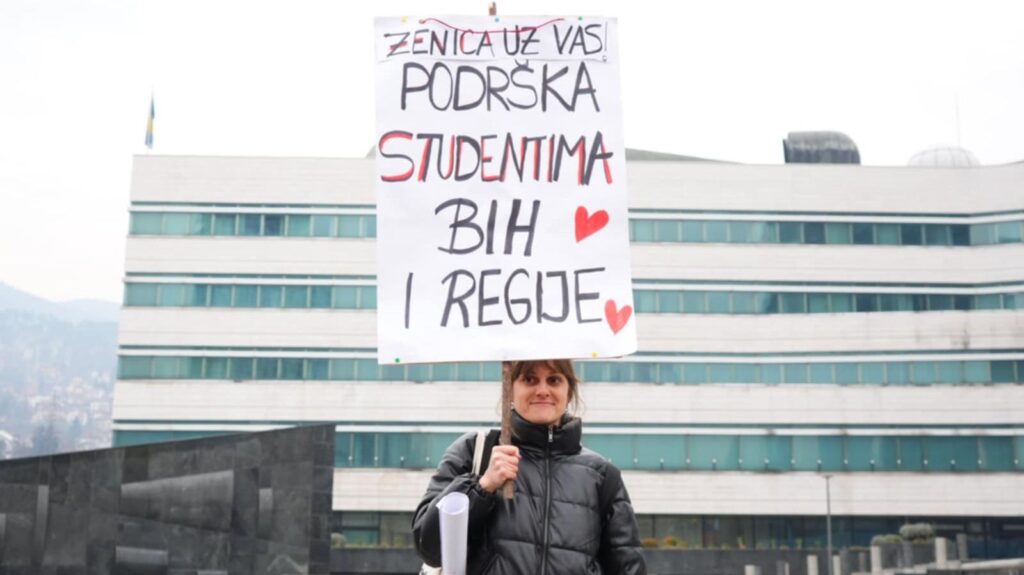 ZENICA UZ VAS!
PODRŠKA
STUDENTIMA
BIH
I REGIJE